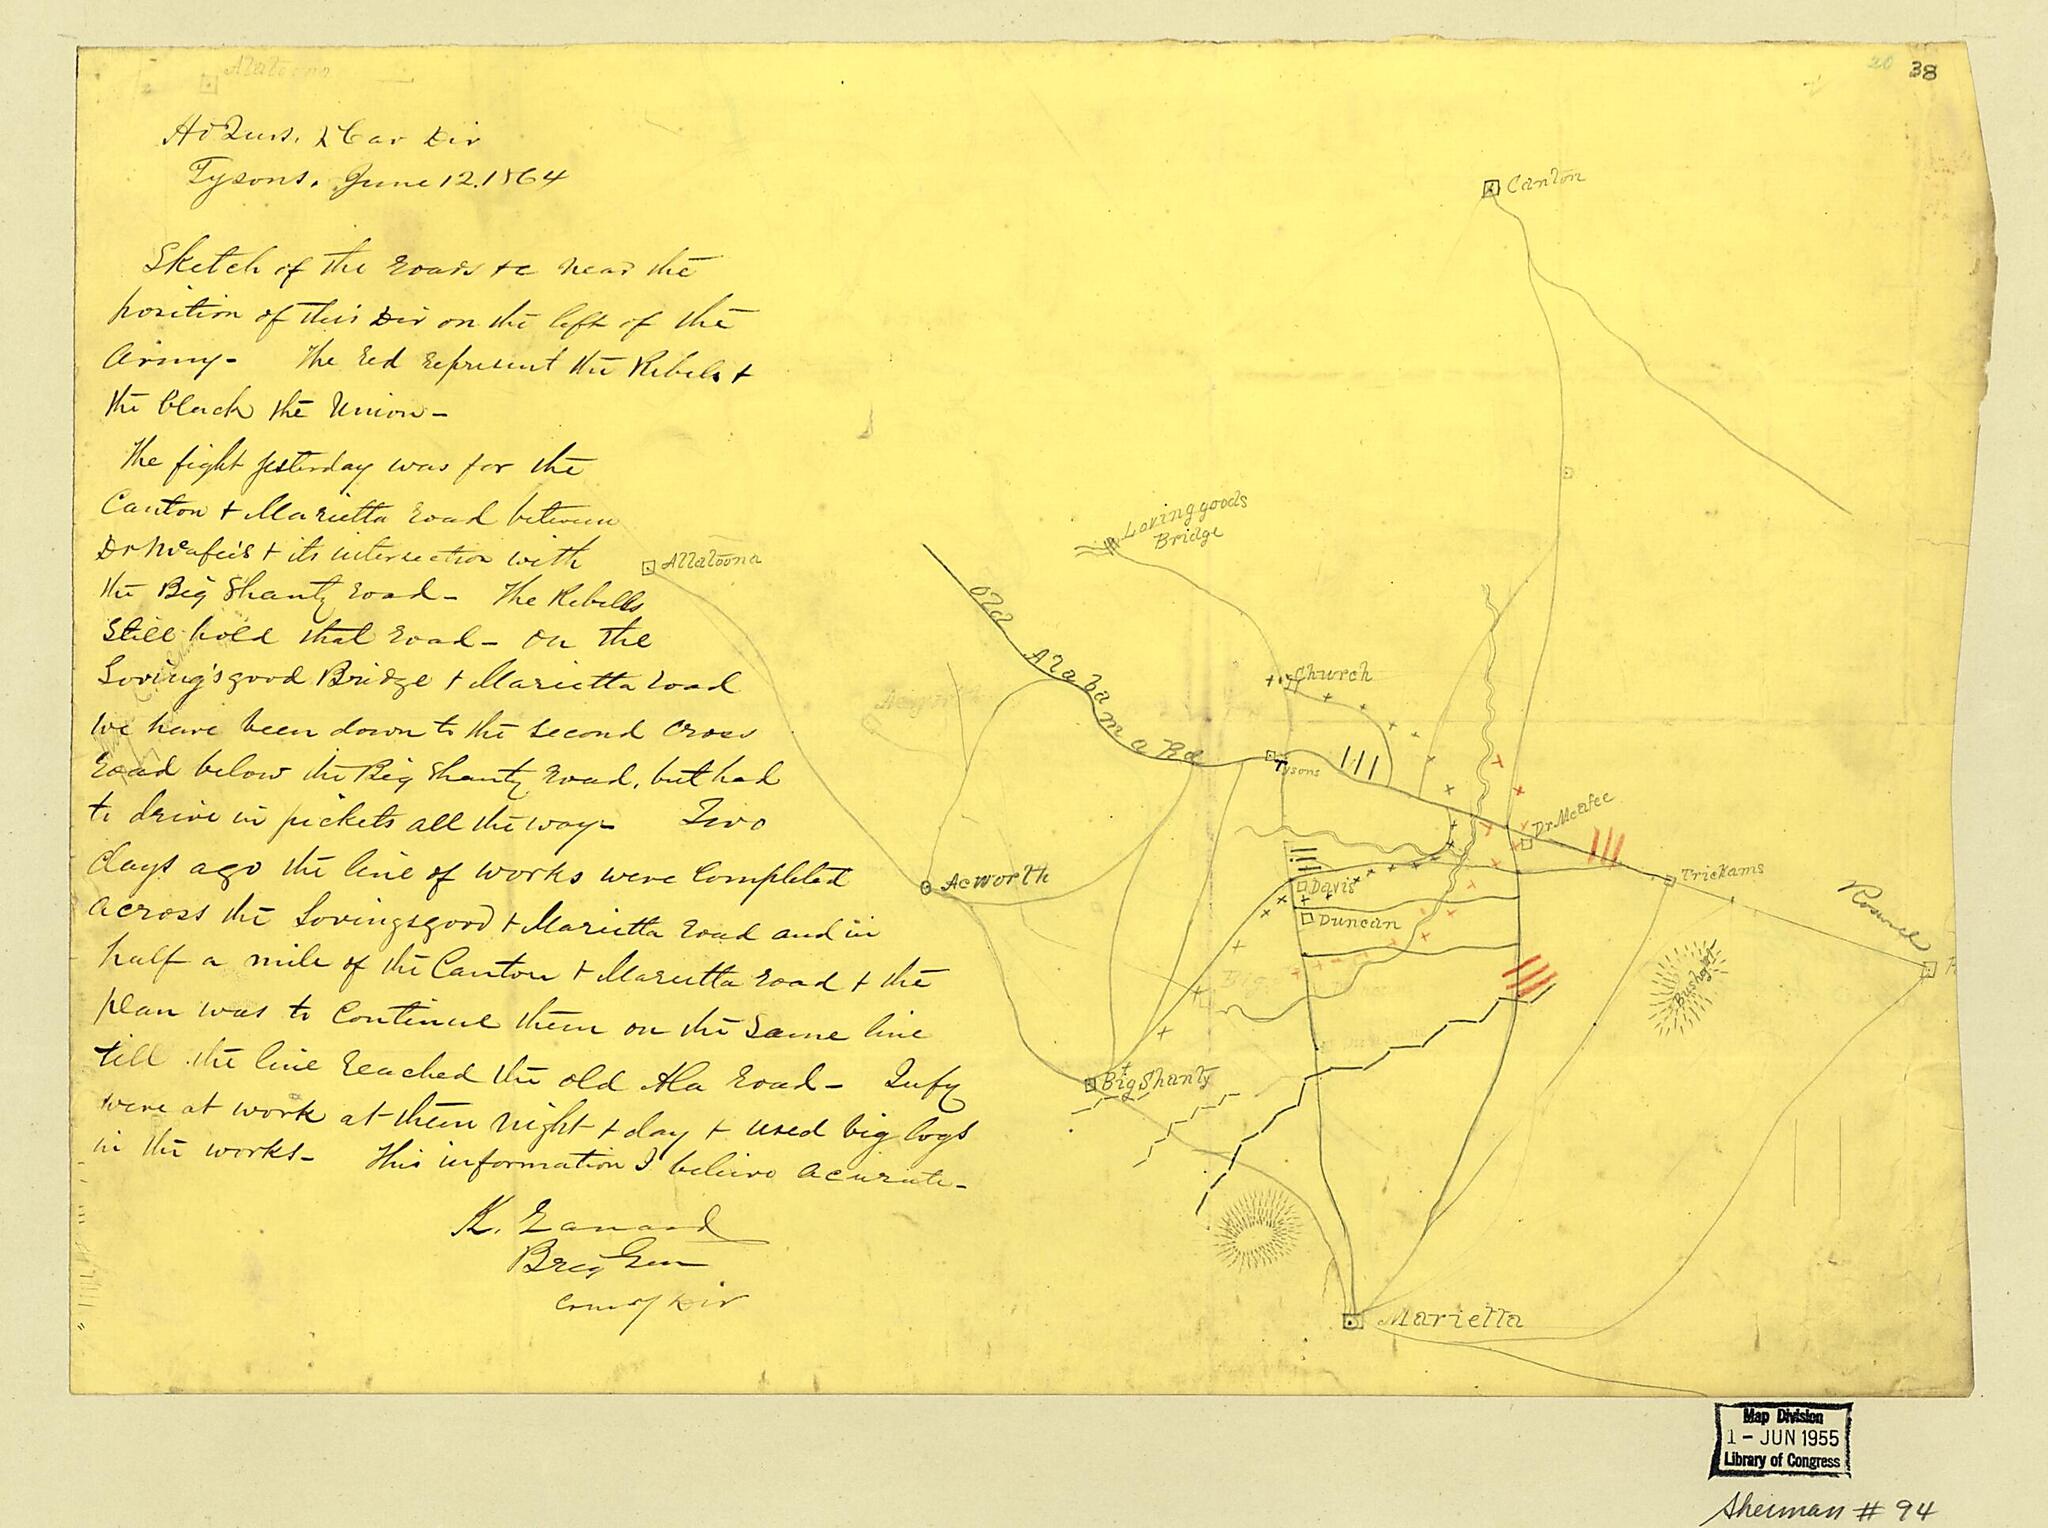 Alatoona
20 38
Hd Qurs. 2 Cav Div
Tysons. June 12. 1864
Sketch of the roads &c near the
position of this Div on the left of the
Army - The red represent the Rebels &
the black the Union -
The fight yesterday was for the
Canton & Marietta road between
Dr McAfee's & its intersection with
the Big Shanty road - The Rebells
Still hold that road - On the
Loving'sgood Bridge & Marietta road
we have been down to the second cross
road below the Big Shanty road, but had
to drive in pickets all the way - Two
days ago the line of works were completed
across the Lovingsgood & Marietta road and in
half a mile of the Canton & Marietta road & the
plan was to continue them on the same line
till the line reached the old Ala road - Infy
were at work at them night & day & used big logs
in the works - This information I believe acurate -
K. Garrard
Brig Gen
Com'g Div
Canton
Lovinggoods
Bridge
Allatoona
Old Alabama Rd
Church
Acworth
Tysons
Dr Mcafee
Trickams
Roswell
R
Acworth
Davis
Duncan
Big
Bushy
Big Shanty
Marietta
Map Division
1 - JUN 1955
Library of Congress
Sherman # 94